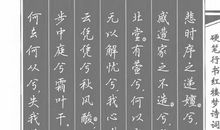 硬笔行书红楼梦诗词
悲时序之递嬗兮，
感遭家之不造兮，
北堂有萱兮，何以
无以解忧兮，我心
云凭凭兮秋风酸，
步中庭兮霜叶干。
何去何从兮，失我